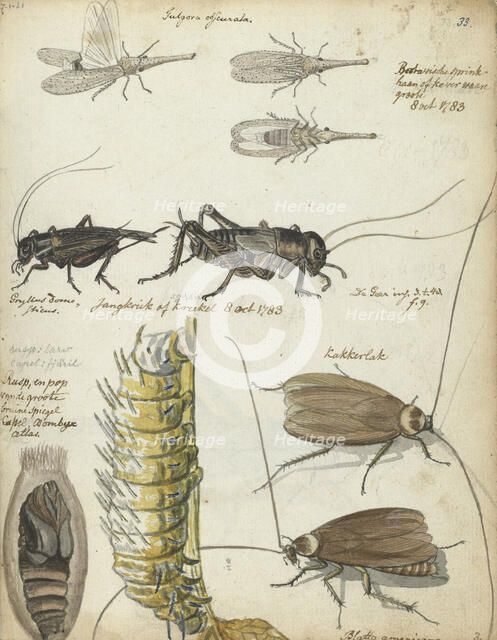 7-1-21
Fulgora obscurata.
33.
Bataviasche sprink-
haan of kever ware
groote
8 oct 1783
Gryllus Domes-
ticus.
Jangkrik of kreekel 8 oct 1783
De Geer ins. 3. t. 43
f. 9.
rusp: larv
capel: fjäril
Rusp, en pop
van de groote
bruine spiegel
Capel. Bombyx
atlas.
kakkerlak
Blatta americana
Heritage
Heritage
Heritage
Heritage
Heritage
Heritage
Heritage
Heritage